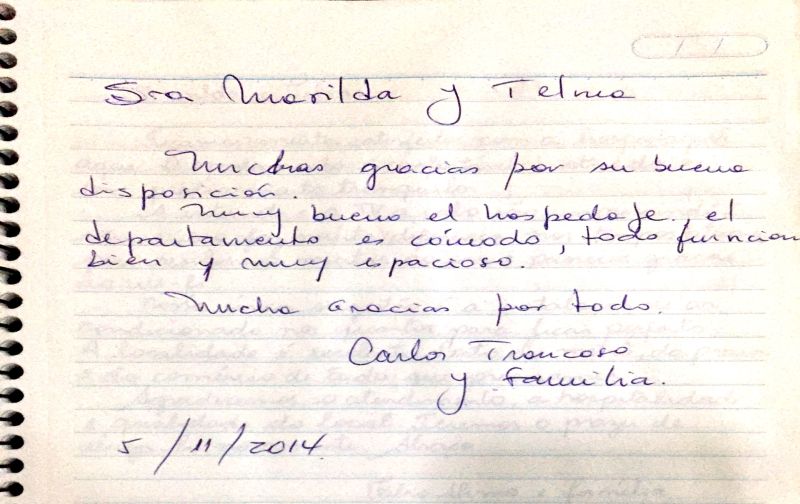 Sra Marilda y Telma
Muchas gracias por su buena
disposición.
Muy bueno el hospedaje, el
departamento es cómodo, todo funciona
bien y muy espacioso.
Mucha Gracias por todo.
Carlos Troncoso
y familia.
5/11/2014